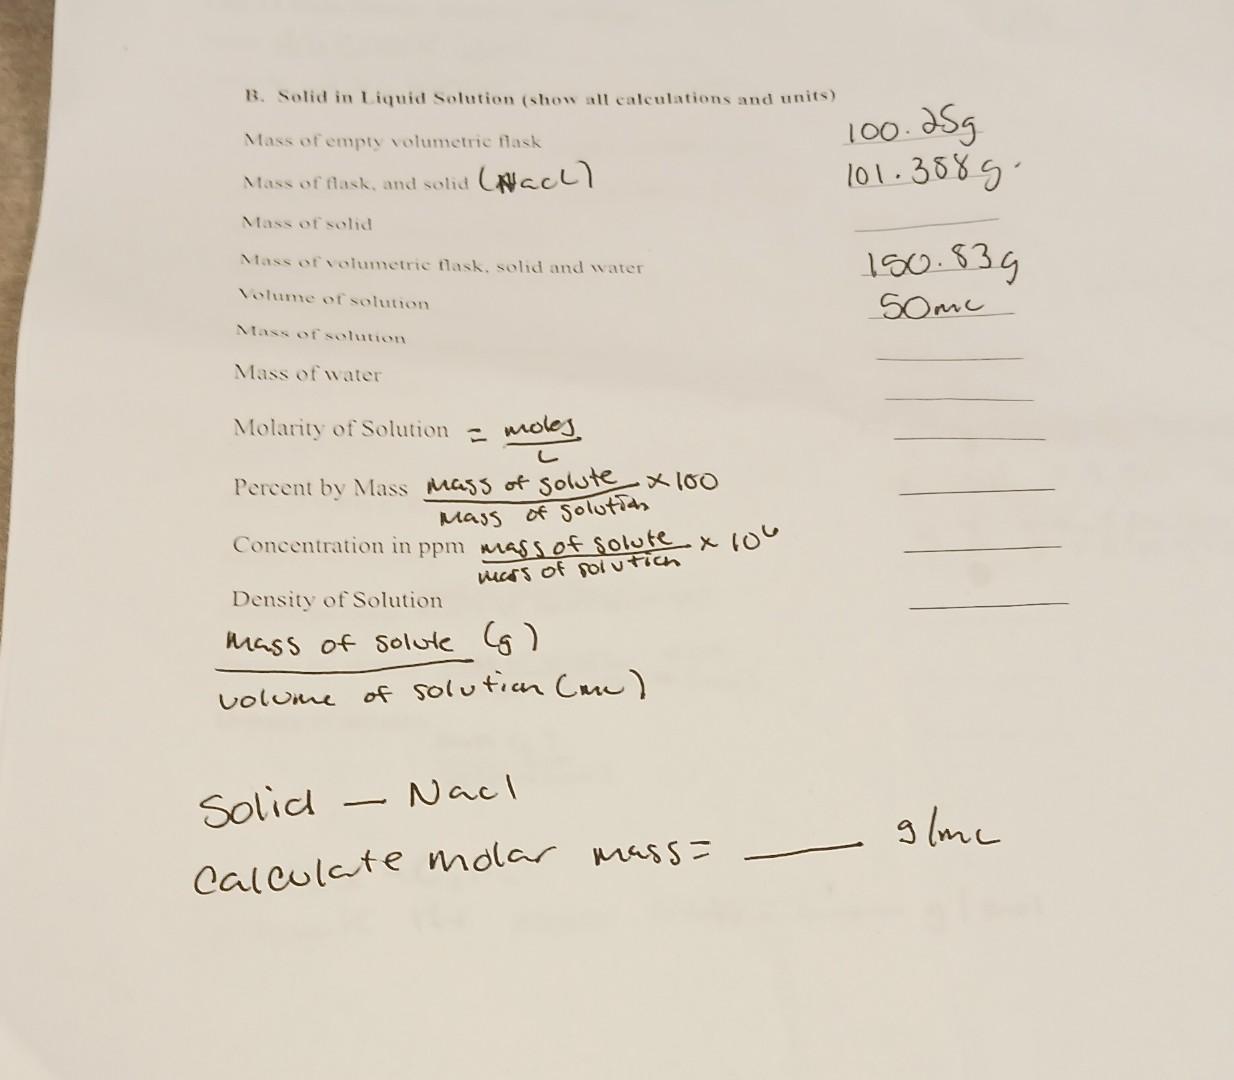 B. Solid in Liquid Solution (show all calculations and units)
Mass of empty volumetric flask 100.25g
Mass of flask, and solid (NaCL) 101.388g.
Mass of solid
Mass of volumetric flask, solid and water 150.83g
Volume of solution 50mL
Mass of solution
Mass of water
Molarity of Solution = moles
L
Percent by Mass mass of solute x 100
mass of solution
Concentration in ppm mass of solute x 10⁶
mass of solution
Density of Solution
mass of solute (g)
volume of solution (mL)
Solid — Nacl
Calculate molar mass = ___ g/mL